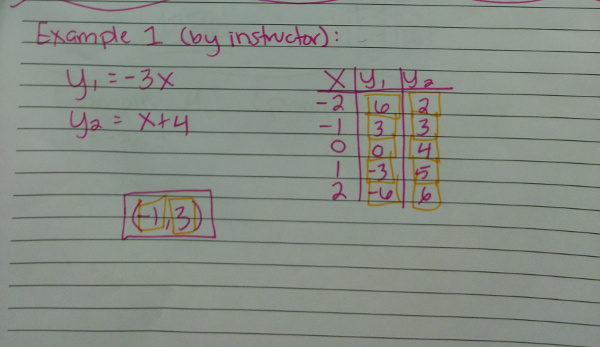 Example 1 (by instructor):
y₁ = -3x
y₂ = x+4
x y₁ y₂
-2 6 2
-1 3 3
0 0 4
1 -3 5
2 -6 6
(-1, 3)